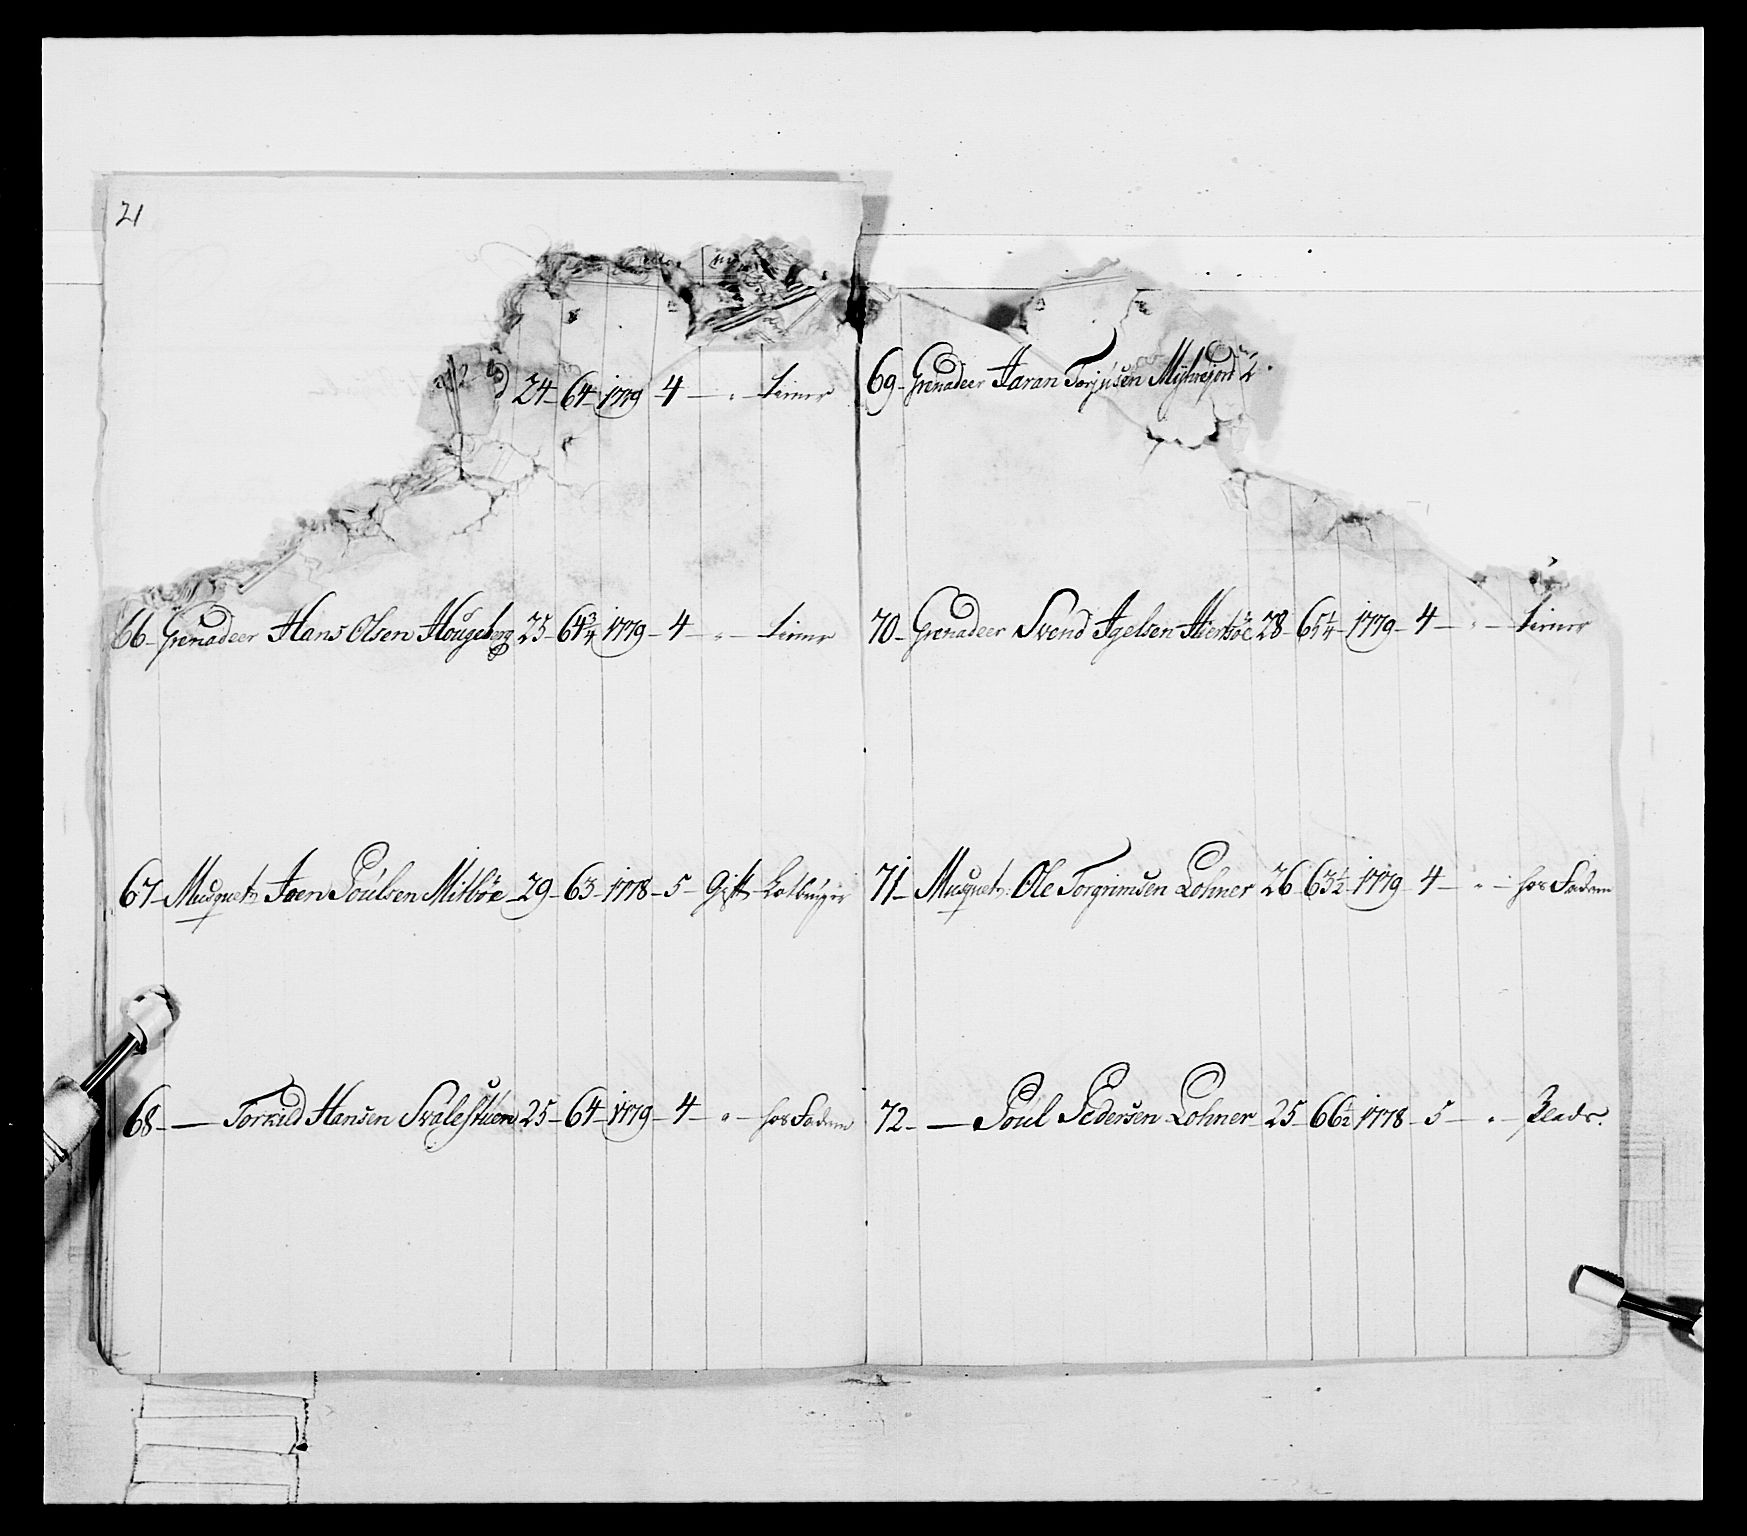 21
24 – 64 – 1779 4 – " – tiener
66 – Grenadeer Hans Olsen Hougeberg 25 – 64 3/4 1779 – 4 – " – tiener
67 – Musquet: Joen Poulsen Mitbøe – 29 – 63 – 1778 – 5 – Gift
68 – — Torkild Hansen Svalestuen 25 – 64 – 1779 – 4 – " – hos Faderen
69 – Grenadeer Aaran Torjusen
70 – Grenadeer Svend Agelsen 28 – 65 1/4 – 1779 – 4 – " – tiener
71 – Musquet: Ole Torgrimsen Lohner 26 63 1/2 – 1779 – 4 – " – hos Faderen
72 – — Poul Pedersen Lohner – 25 – 66 1/2 1778 – 5 – " –